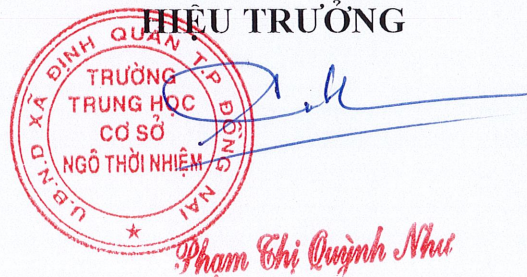 HIỆU TRƯỞNG
U.B.N.D XÃ ĐỊNH QUÁN T.P ĐỒNG NAI
TRƯỜNG
TRUNG HỌC
CƠ SỞ
NGÔ THỜI NHIỆM
Phạm Thị Quỳnh Như